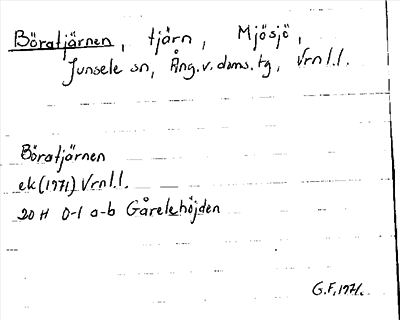 Böratjärnen, tjärn, Mjösjö,
Junsele sn, Ång. v. doms. tg, Vrnl.l.
Böratjärnen
ek (1971) Vrnl.l.
20 H 0-1 a-b Gårelehöjden
G.F. 1971.